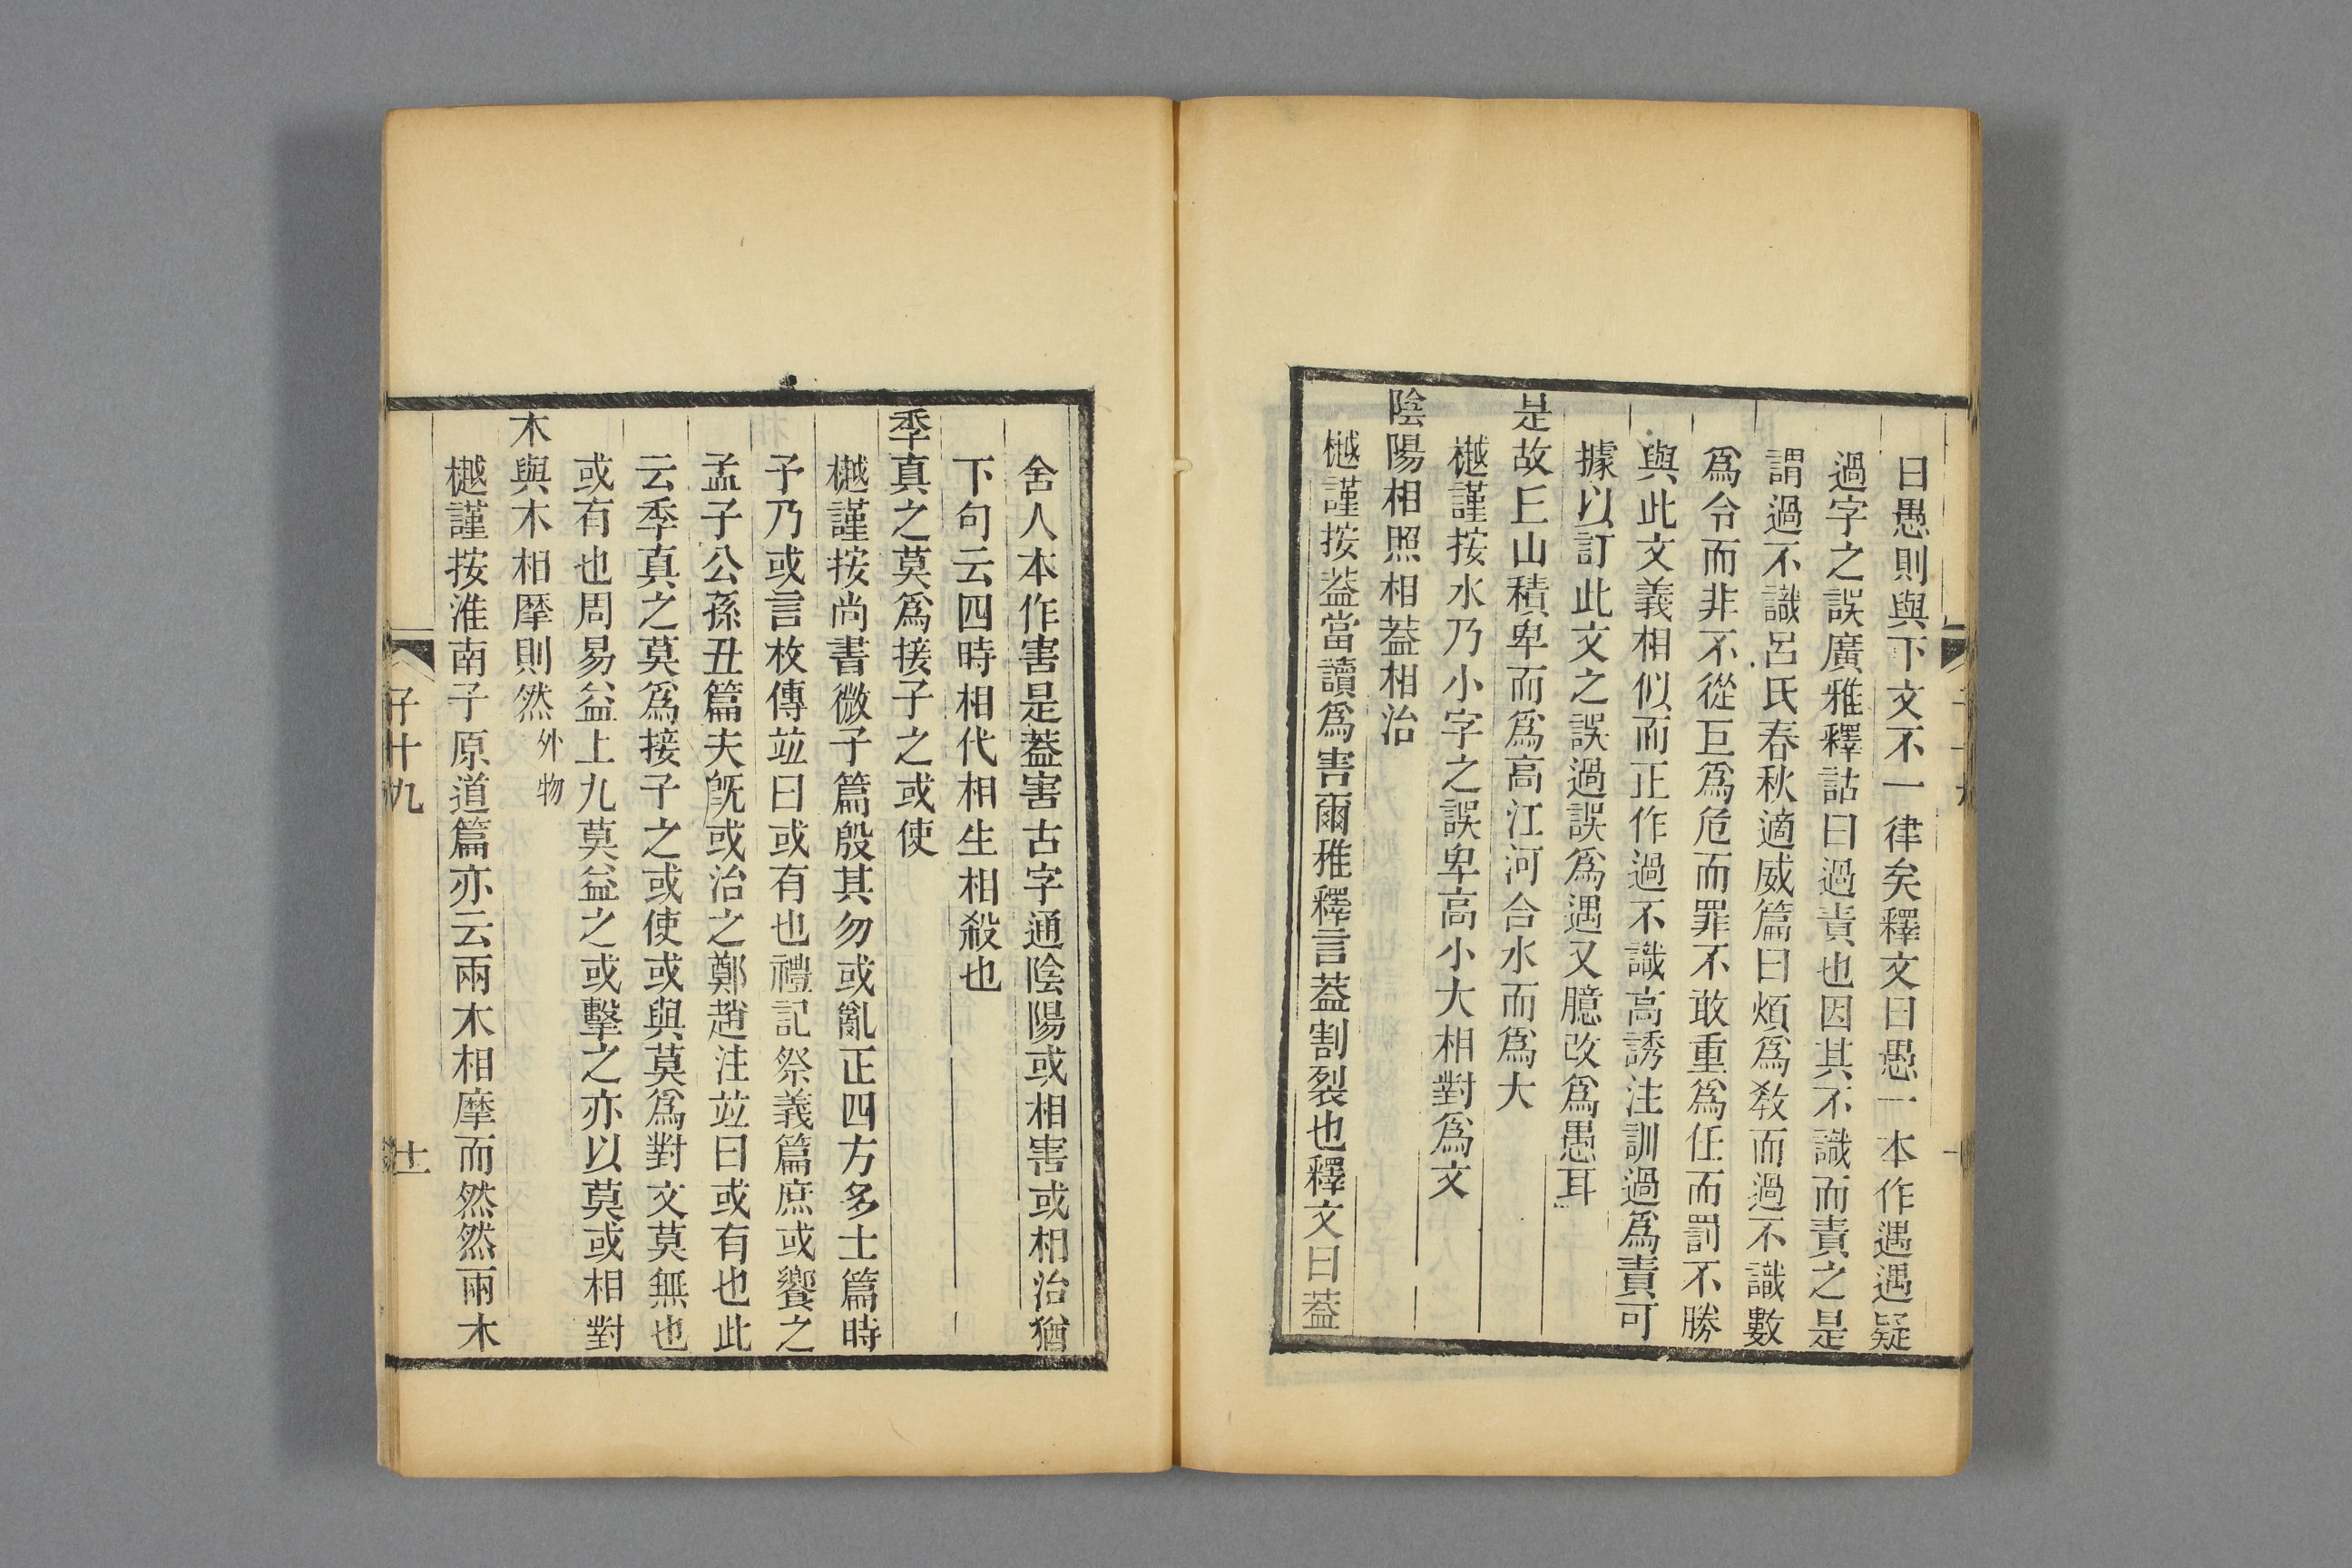 曰愚則與下文不一律矣釋文曰愚一本作遇遇疑
過字之誤廣雅釋詁曰過責也因其不識而責之是
謂過不識呂氏春秋適威篇曰煩爲教而過不識數
爲令而非不從巨爲危而罪不敢重爲任而罰不勝
與此文義相似而正作過不識高誘注訓過爲責可
據以訂此文之誤過誤爲遇又臆改爲愚耳
是故𠀉山積卑而爲高江河合水而爲大
樾謹按水乃小字之誤卑高小大相對爲文
陰陽相照相葢相治
樾謹按葢當讀爲害爾雅釋言葢割裂也釋文曰葢
舍人本作害是葢害古字通陰陽或相害或相治猶
下句云四時相代相生相殺也
季真之莫爲接子之或使
樾謹按尚書微子篇殷其勿或亂正四方多士篇時
予乃或言枚傳竝曰或有也禮記祭義篇庶或饗之
孟子公孫丑篇夫旣或治之鄭趙注竝曰或有也此
云季真之莫爲接子之或使或與莫爲對文莫無也
或有也周易益上九莫益之或擊之亦以莫或相對
木與木相摩則然 外物
樾謹按淮南子原道篇亦云兩木相摩而然然兩木
子十九
十一